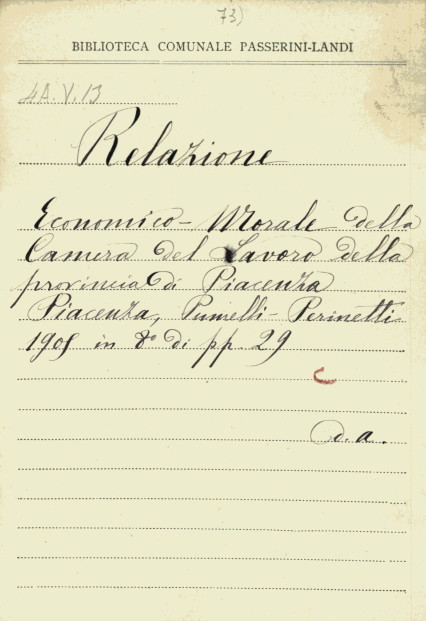 73)
BIBLIOTECA COMUNALE PASSERINI-LANDI
4A.V.13
Relazione
Economico-Morale della
Camera del Lavoro della
provincia di Piacenza
Piacenza, Pumelli-Perinetti
in 8° di pp. 29
C
d. a.